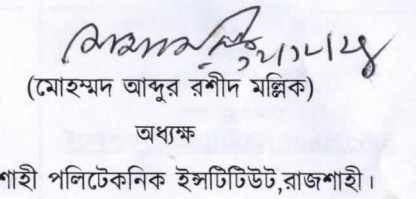 (মোহম্মদ আব্দুর রশীদ মল্লিক)
অধ্যক্ষ
শাহী পলিটেকনিক ইন্সটিটিউট,রাজশাহী।